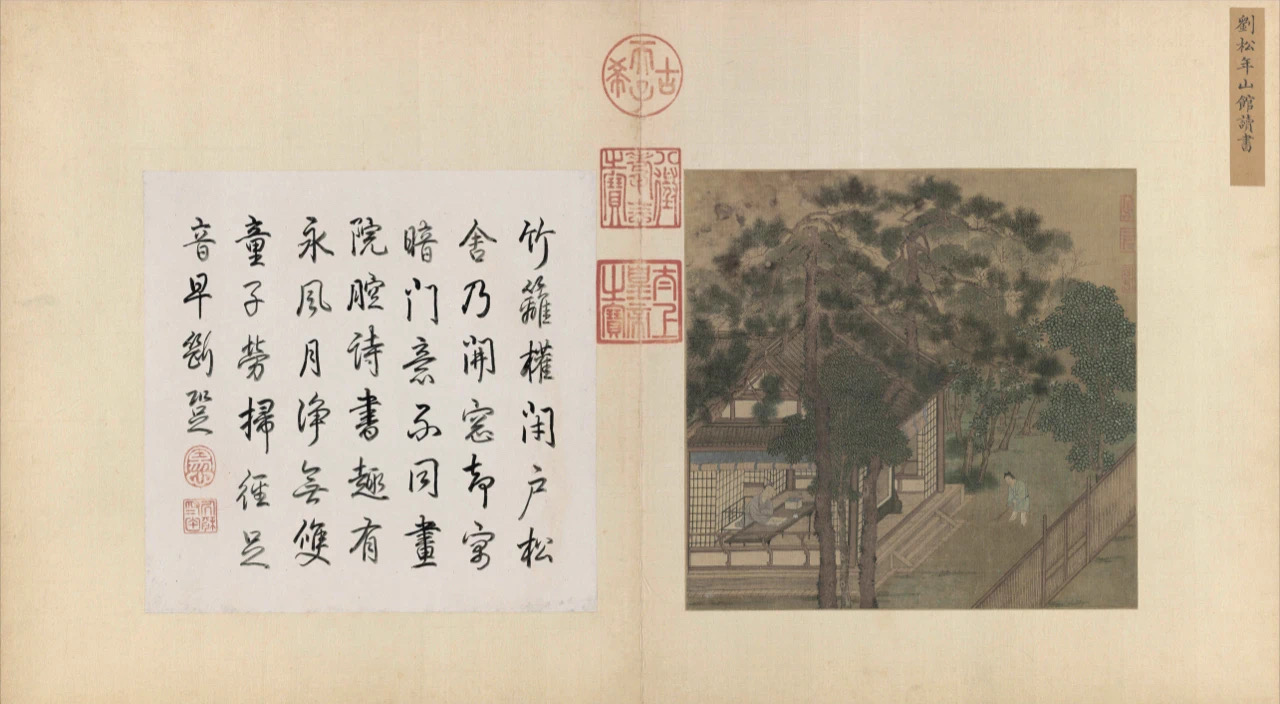 劉松年山館讀書
古希天子
八徵耄念之寶
太上皇帝之寶
竹籬權閉户松
舍乃開窓却寓
暗門意不同畫
院腔詩書趣有
永風月淨無雙
童子勞掃徑足
音早斷跫